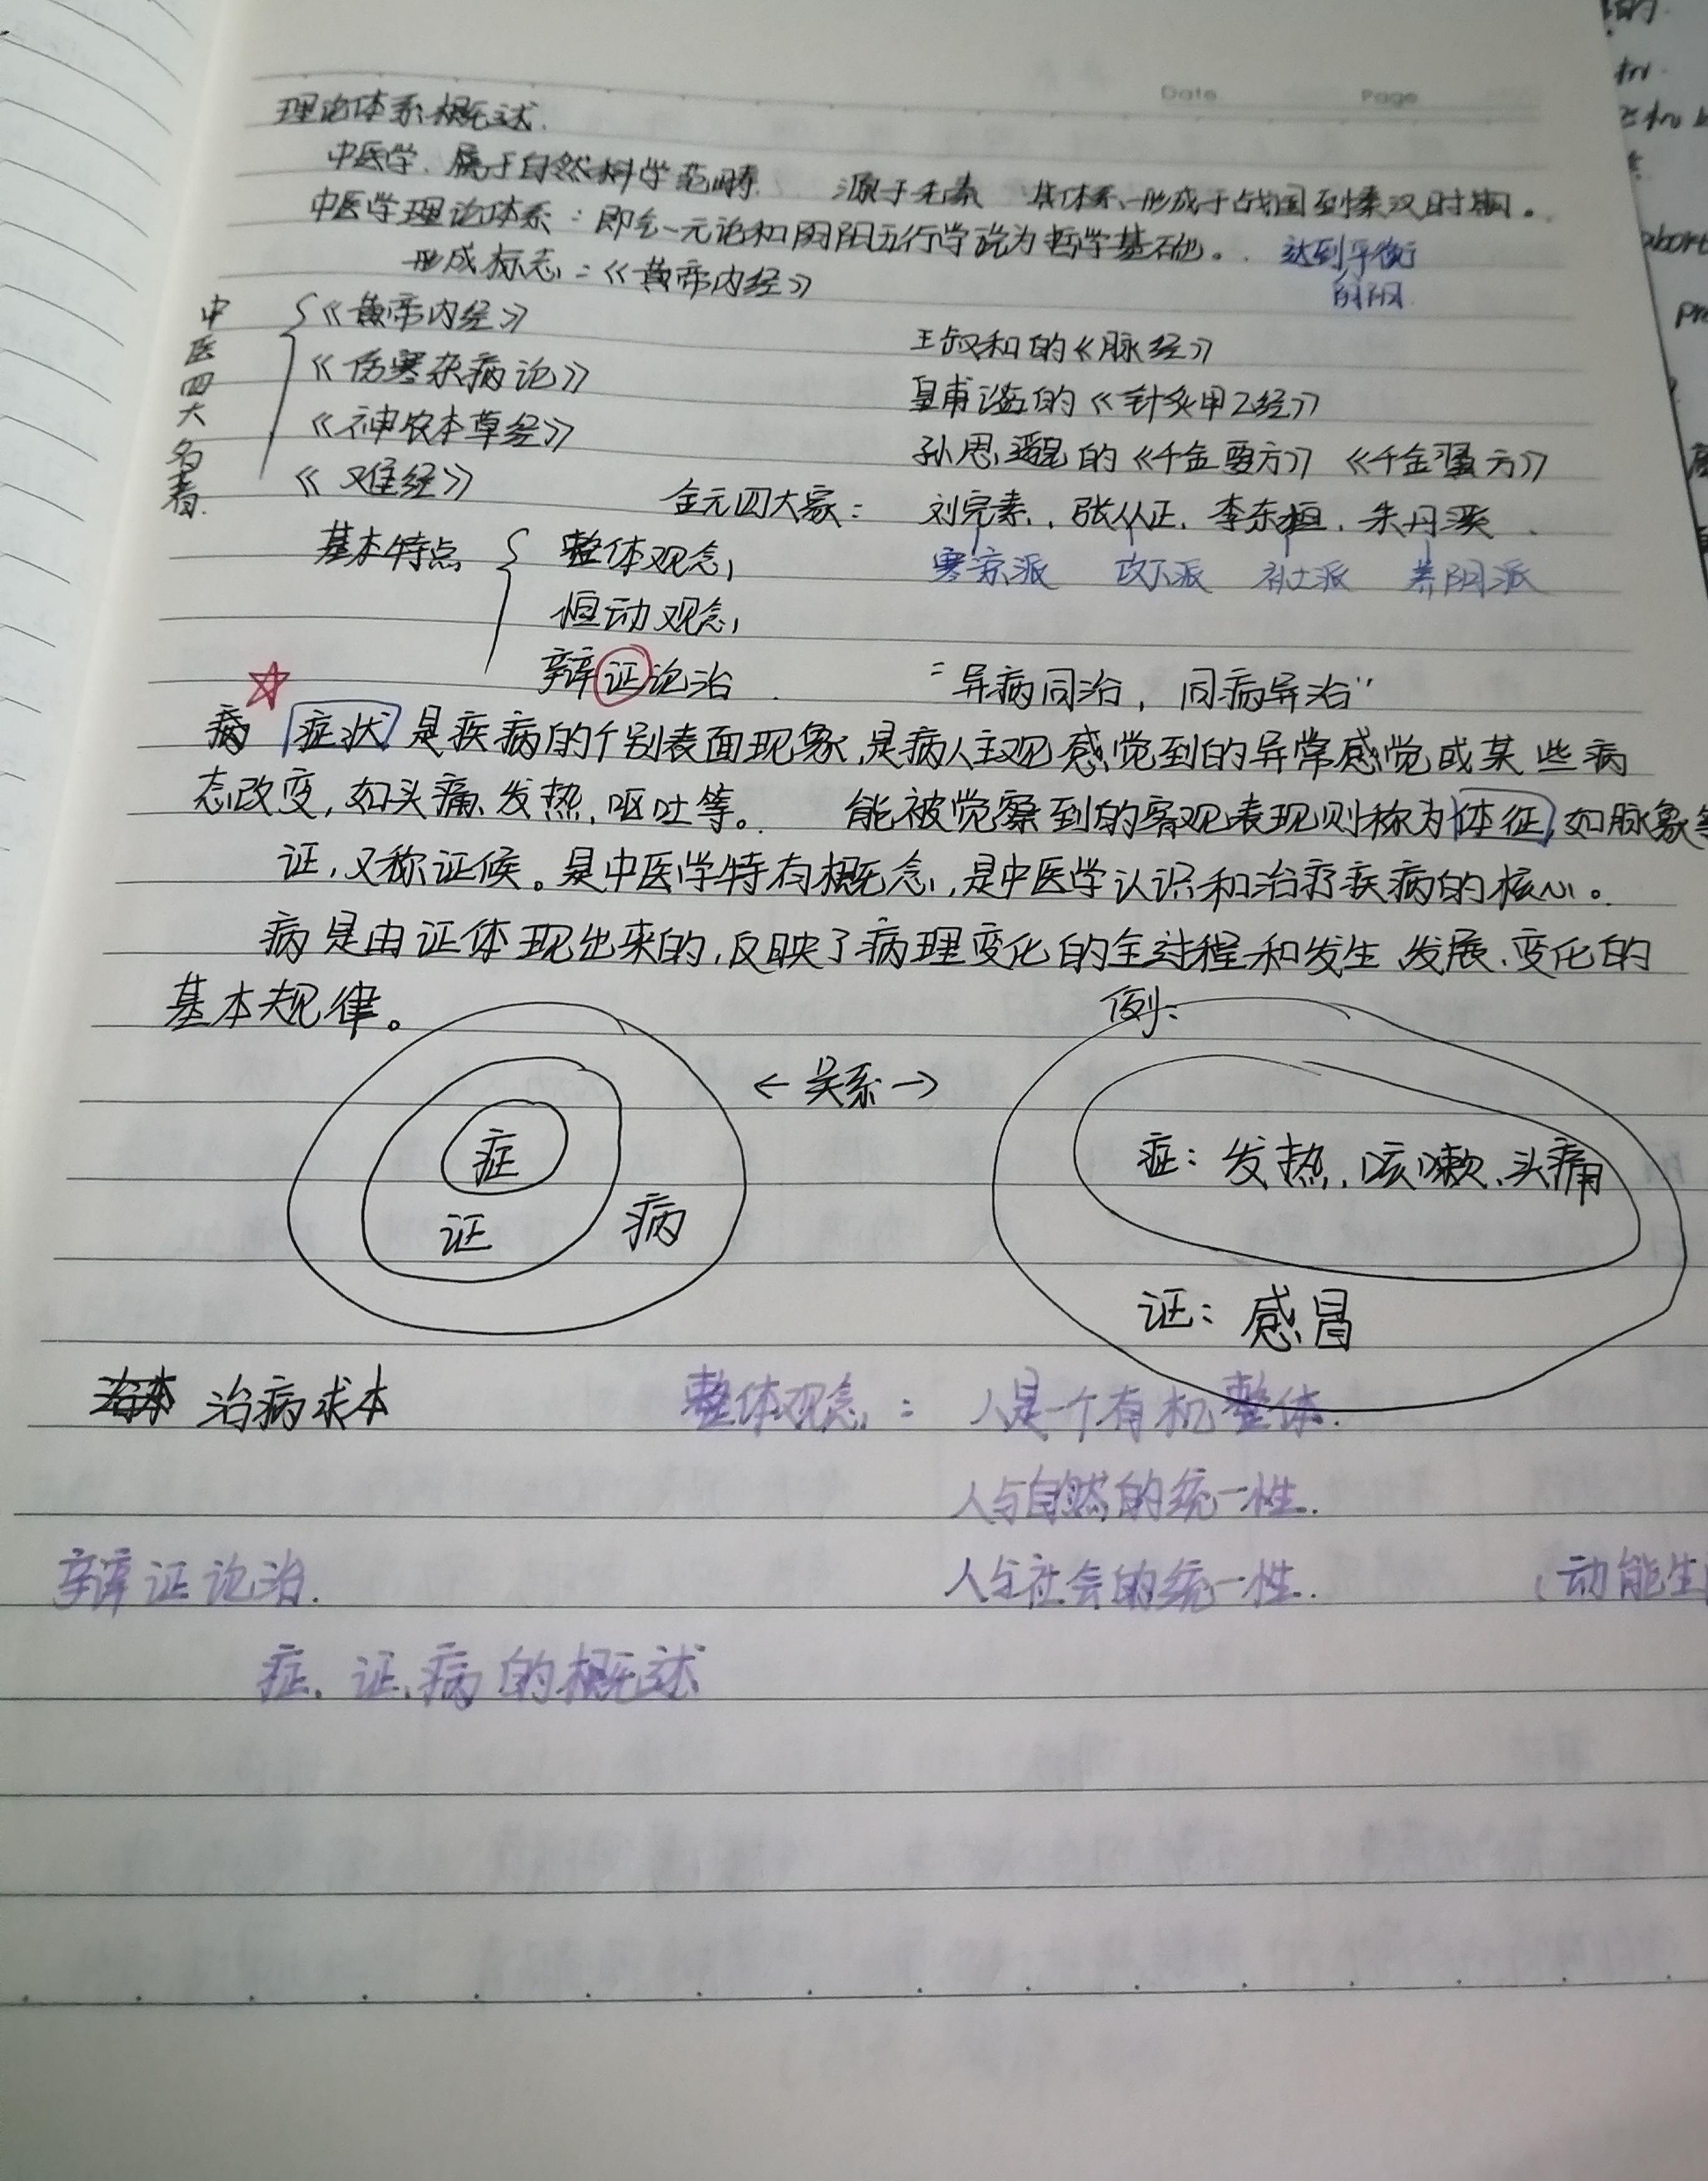 Date Page
理论体系概述.
中医学.属于自然科学范畴. 源于先秦 其体系形成于战国到秦汉时期。
中医学理论体系：即气一元论和阴阳五行学说为哲学基础。 达到平衡
阴阳
形成标志：《黄帝内经》
中医四大名著.
《黄帝内经》
《伤寒杂病论》
《神农本草经》
《难经》
王叔和的《脉经》
皇甫谧的《针灸甲乙经》
孙思邈的《千金要方》《千金翼方》
金元四大家： 刘完素、张从正、李东垣、朱丹溪.
寒凉派 攻下派 补土派 养阴派
基本特点
整体观念
恒动观念
辩证论治. "异病同治，同病异治"
病 症状 是疾病的个别表面现象,是病人主观感觉到的异常感觉或某些病
态改变,如头痛、发热、呕吐等。 能被觉察到的客观表现则称为体征,如脉象等
证,又称证候。是中医学特有概念,是中医学认识和治疗疾病的核心。
病是由证体现出来的,反映了病理变化的全过程和发生、发展、变化的
基本规律。
例:
症
证
病
←关系→
症：发热、咳嗽、头痛
证：感冒
治病求本
整体观念： 人是一个有机整体.
人与自然的统一性.
人与社会的统一性.
辩证论治.
症、证、病的概述